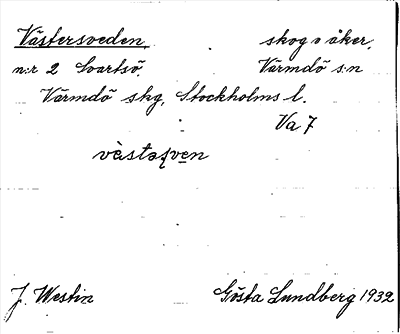 Västersveden, skog o åker,
n:r 2 Svartsö, Värmdö s:n
Värmdö skg, Stockholms l.
Va 7
J. Westin Gösta Lundberg 1932